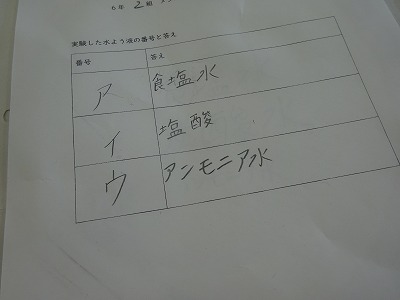 6年 2組
実験した水よう液の番号と答え
番号 答え
ア 食塩水
イ 塩酸
ウ アンモニア水